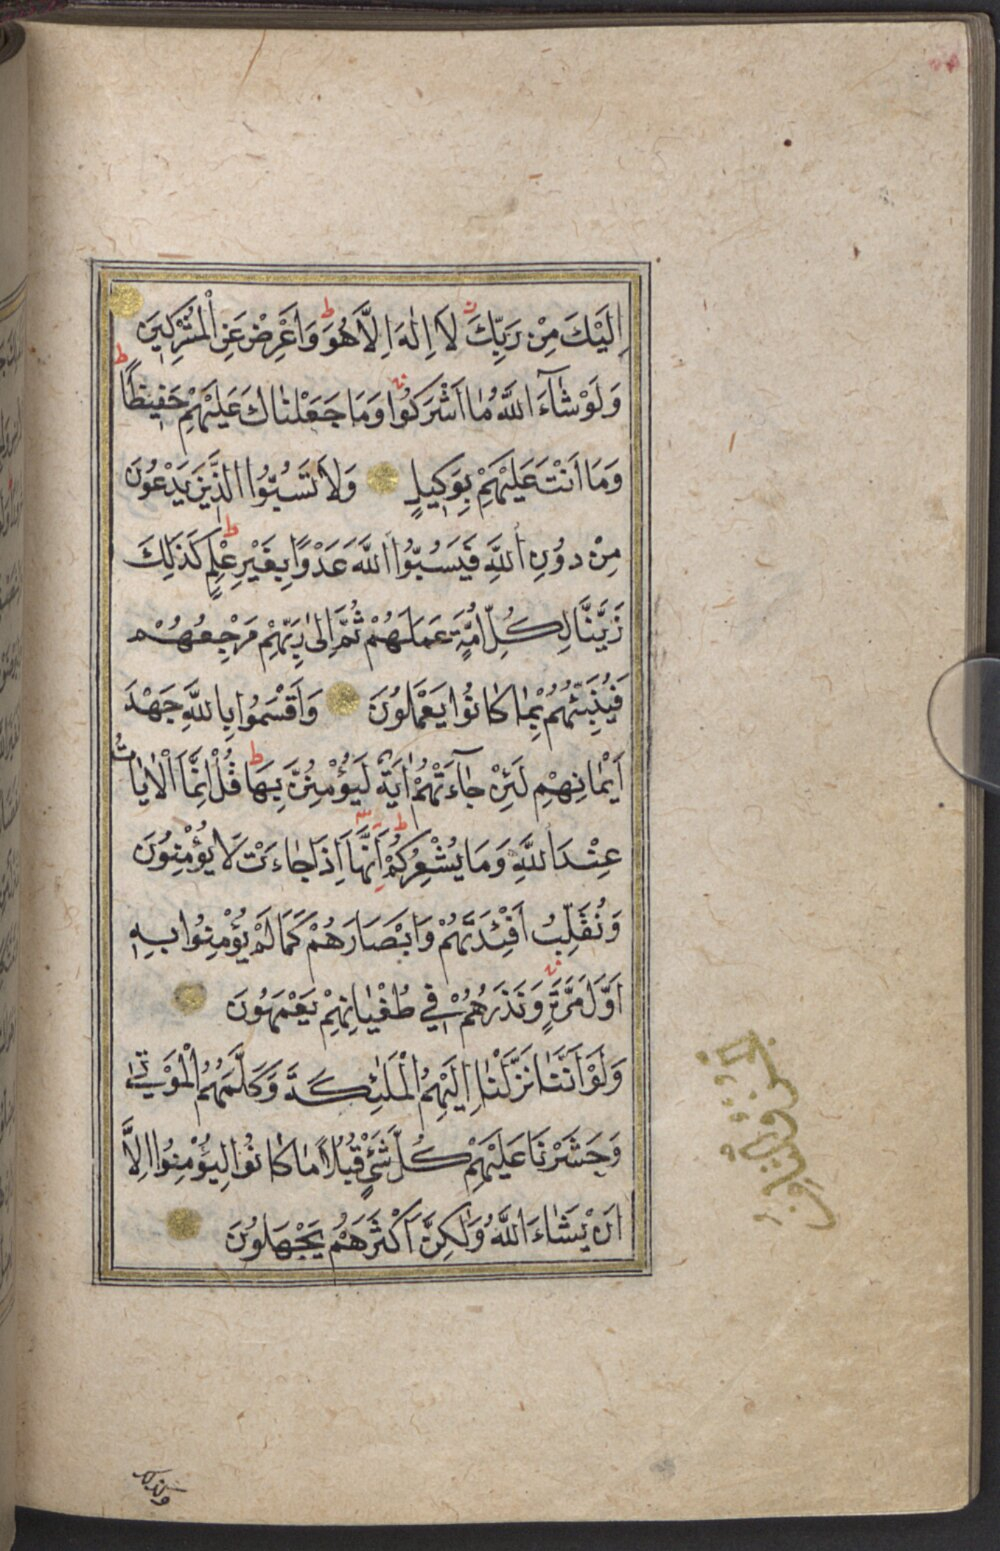 اِلَيْكَ مِنْ رَبِّكَ لَا اِلٰهَ اِلَّا هُوَ وَاَعْرِضْ عَنِ الْمُشْرِكِينَ
وَلَوْ شَآءَ اللَّهُ مَا اَشْرَكُوا وَمَا جَعَلْنَاكَ عَلَيْهِمْ حَفِيظًا
وَمَا اَنْتَ عَلَيْهِمْ بِوَكِيلٍ وَلَا تَسُبُّوا الَّذِينَ يَدْعُونَ
مِنْ دُونِ اللَّهِ فَيَسُبُّوا اللَّهَ عَدْوًا بِغَيْرِ عِلْمٍ كَذٰلِكَ
زَيَّنَّا لِكُلِّ اُمَّةٍ عَمَلَهُمْ ثُمَّ اِلٰى رَبِّهِمْ مَرْجِعُهُمْ
فَيُنَبِّئُهُمْ بِمَا كَانُوا يَعْمَلُونَ وَاَقْسَمُوا بِاللَّهِ جَهْدَ
اَيْمَانِهِمْ لَئِنْ جَآءَتْهُمْ اٰيَةٌ لَيُؤْمِنُنَّ بِهَا قُلْ اِنَّمَا الْاٰيَاتُ
عِنْدَ اللَّهِ وَمَا يُشْعِرُكُمْ اَنَّهَا اِذَا جَاءَتْ لَا يُؤْمِنُونَ
وَنُقَلِّبُ اَفْئِدَتَهُمْ وَاَبْصَارَهُمْ كَمَا لَمْ يُؤْمِنُوا بِهِ
اَوَّلَ مَرَّةٍ وَنَذَرُهُمْ فِي طُغْيَانِهِمْ يَعْمَهُونَ
وَلَوْ اَنَّنَا نَزَّلْنَا اِلَيْهِمُ الْمَلٰئِكَةَ وَكَلَّمَهُمُ الْمَوْتٰى
وَحَشَرْنَا عَلَيْهِمْ كُلَّ شَيْءٍ قُبُلًا مَا كَانُوا لِيُؤْمِنُوا اِلَّا
اَنْ يَشَاءَ اللَّهُ وَلٰكِنَّ اَكْثَرَهُمْ يَجْهَلُونَ